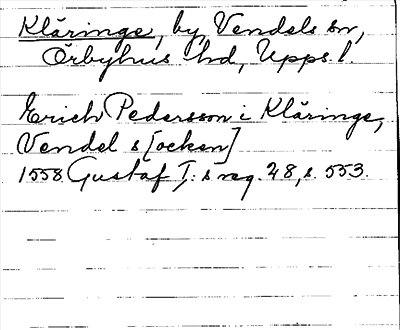 Kläringe, by, Vendels sn,
Örbyhus hd, Upps. l.
Erich Pedersson i Kläringe,
Vendel s[ocken]
1558. Gustaf I:s reg. 28, s. 553.